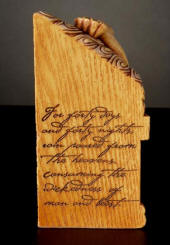 For forty days
and forty nights
rain poured from
the heavens
consuming the
wickedness of
man and beast